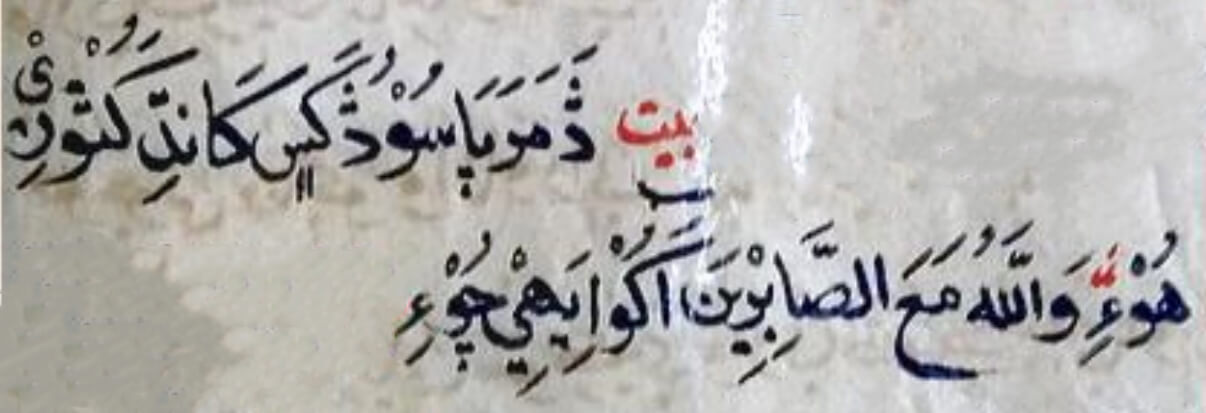 بيت ذَمَرَ پَاسُوْ ذُکَ کَانِدِّ کَتُّوْرِيْ
هُوْءِ وَاللّٰهُ مَعَ الصَّابِرِيْنَ اَکُوْ اِيَهِيْ چُوْءِ